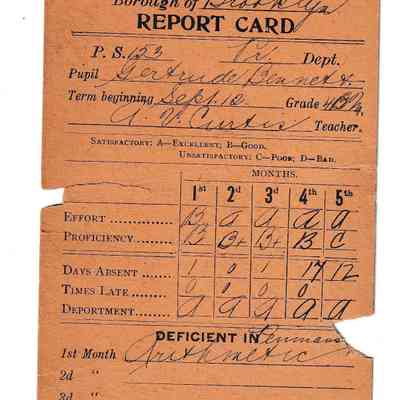 Borough of Brooklyn
REPORT CARD
P. S. 123 Pr. Dept.
Pupil Gertrude Bennett
Term beginning Sept. 12 Grade
A. V. Curtis Teacher.
SATISFACTORY: A—EXCELLENT; B—GOOD.
UNSATISFACTORY: C—POOR; D—BAD.
MONTHS.
1st 2d 3d 4th 5th
EFFORT B a a a a
PROFICIENCY B B+ B+ B C
DAYS ABSENT 1 0 1 17 12
TIMES LATE 0 0 0 0 0
DEPORTMENT a a a a a
DEFICIENT IN Penmans
1st Month Arithmetic
2d "
3d "